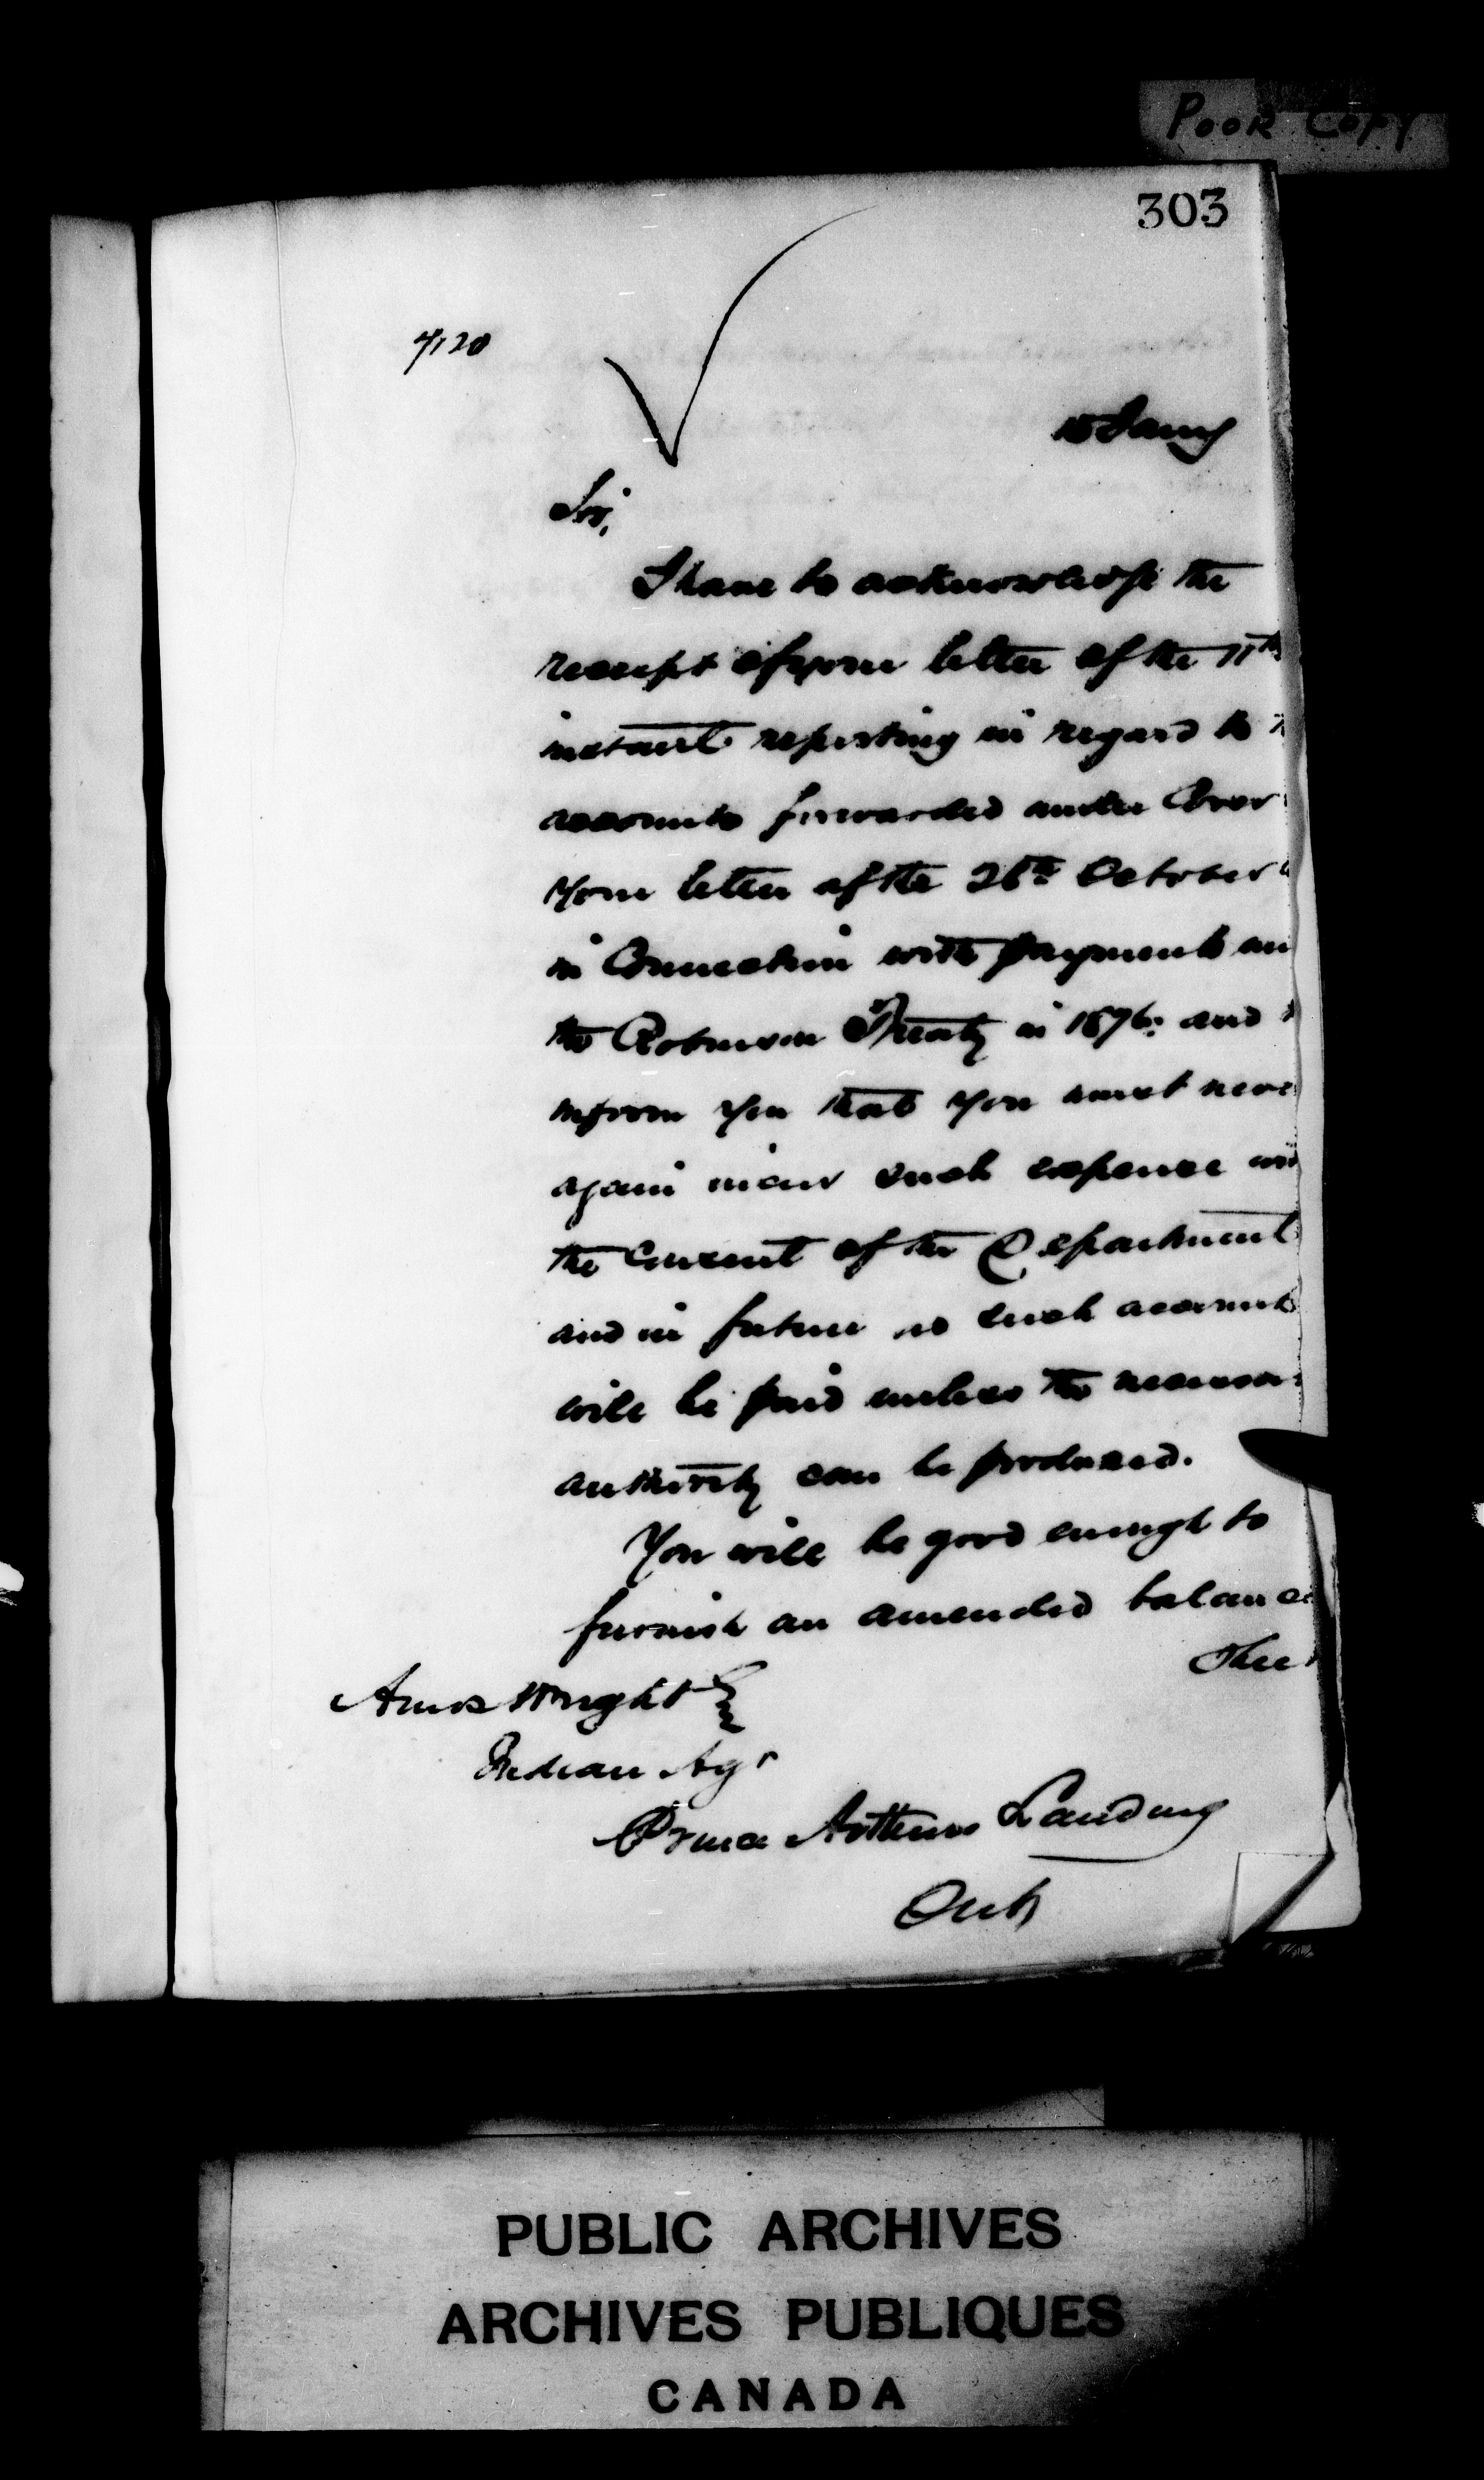 Poor Copy
303
7120
18 Jany
Sir,
I have to acknowledge the
receipt of your letter of the 11th
instant reporting in regard to
accounts forwarded under Cover
your letter of the 26th October
in Connection with payments un
the Robinson Treaty in 1876; and
inform you that you must never
again incur such expense wi
the consent of the Department
and in future no such accounts
will be paid unless the necessa
authority can be produced.
You will be good enough to
furnish an amended balance
Shee
Amos Wright
Indian Agt
Prince Arthurs Landing
Ont
PUBLIC ARCHIVES
ARCHIVES PUBLIQUES
CANADA